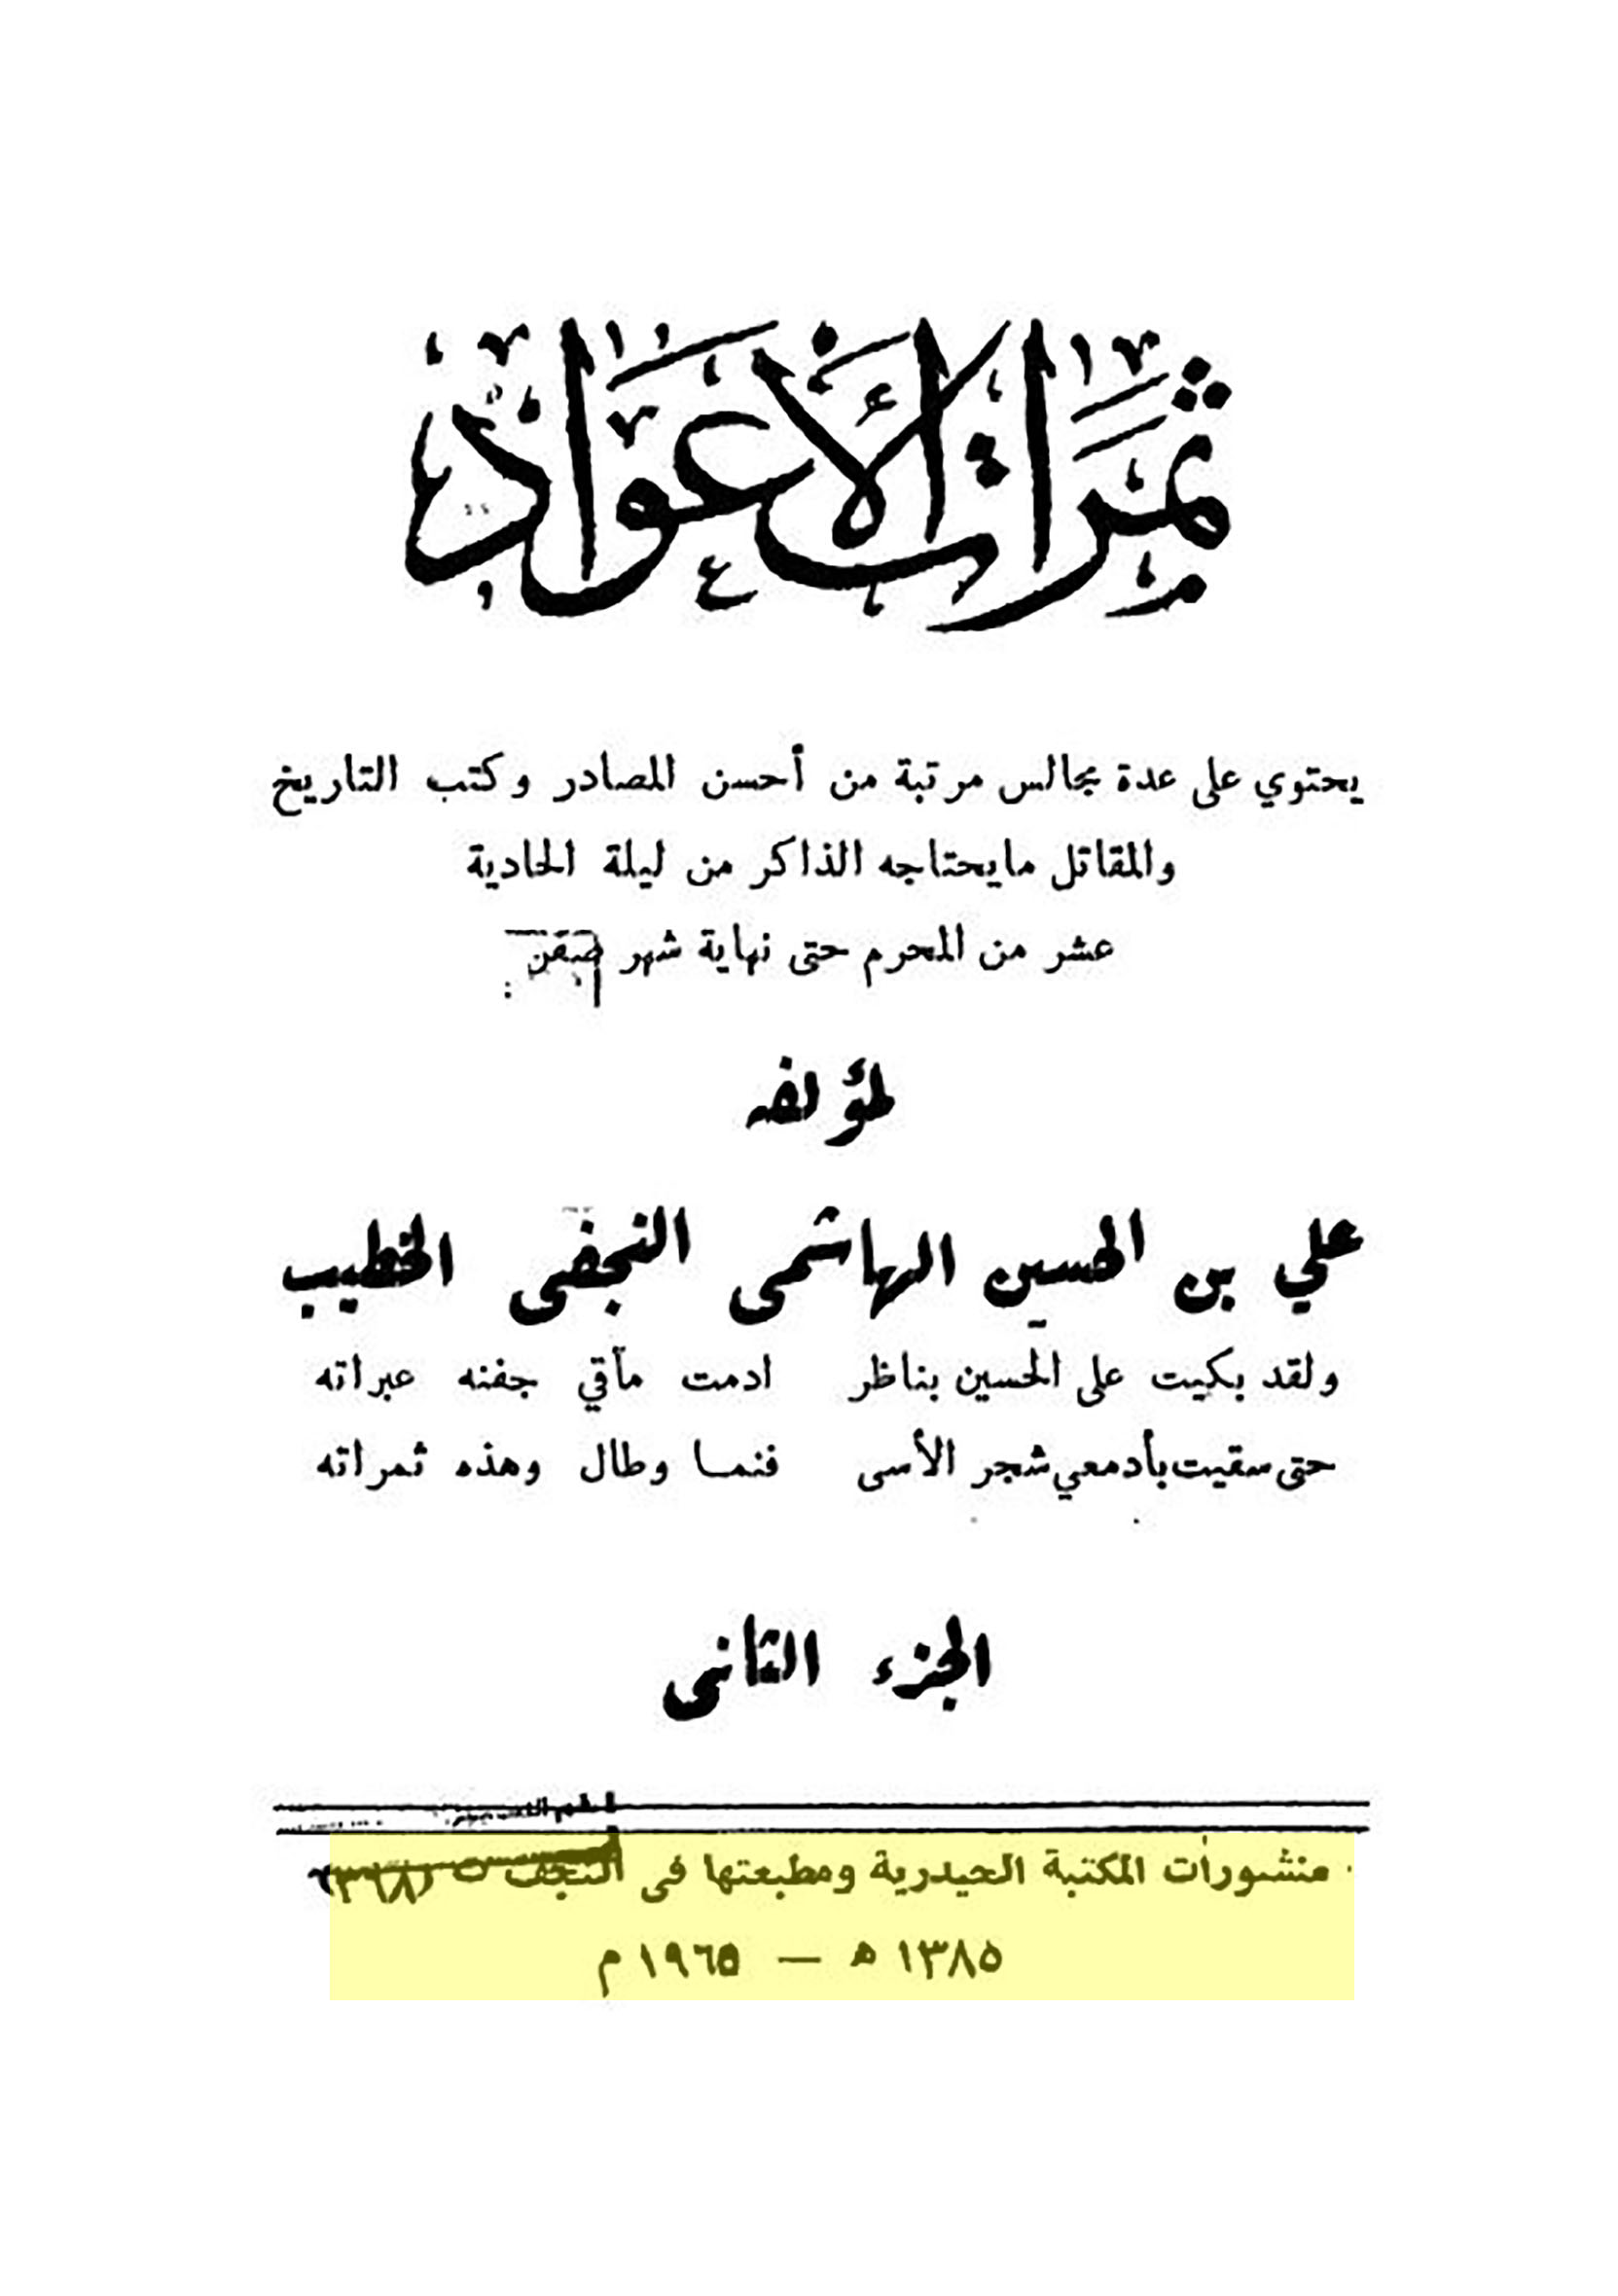 ثمرات الأعواد
يحتوي على عدة مجالس مرتبة من أحسن المصادر وكتب التاريخ
والمقاتل مايحتاجه الذاكر من ليلة الحادية
عشر من المحرم حتى نهاية شهر صفر
لمؤلفه
علي بن الحسين الهاشمى النجفى الخطيب
ولقد بكيت على الحسين بناظر ادمت مآقي جفنه عبراته
حتى سقيت بأدمعي شجر الأسى فنمـا وطال وهذه ثمراته
الجزء الثانى
منشورات المكتبة الحيدرية ومطبعتها فى النجف ت (٣٦٨)
١٣٨٥ ه — ١٩٦٥ م